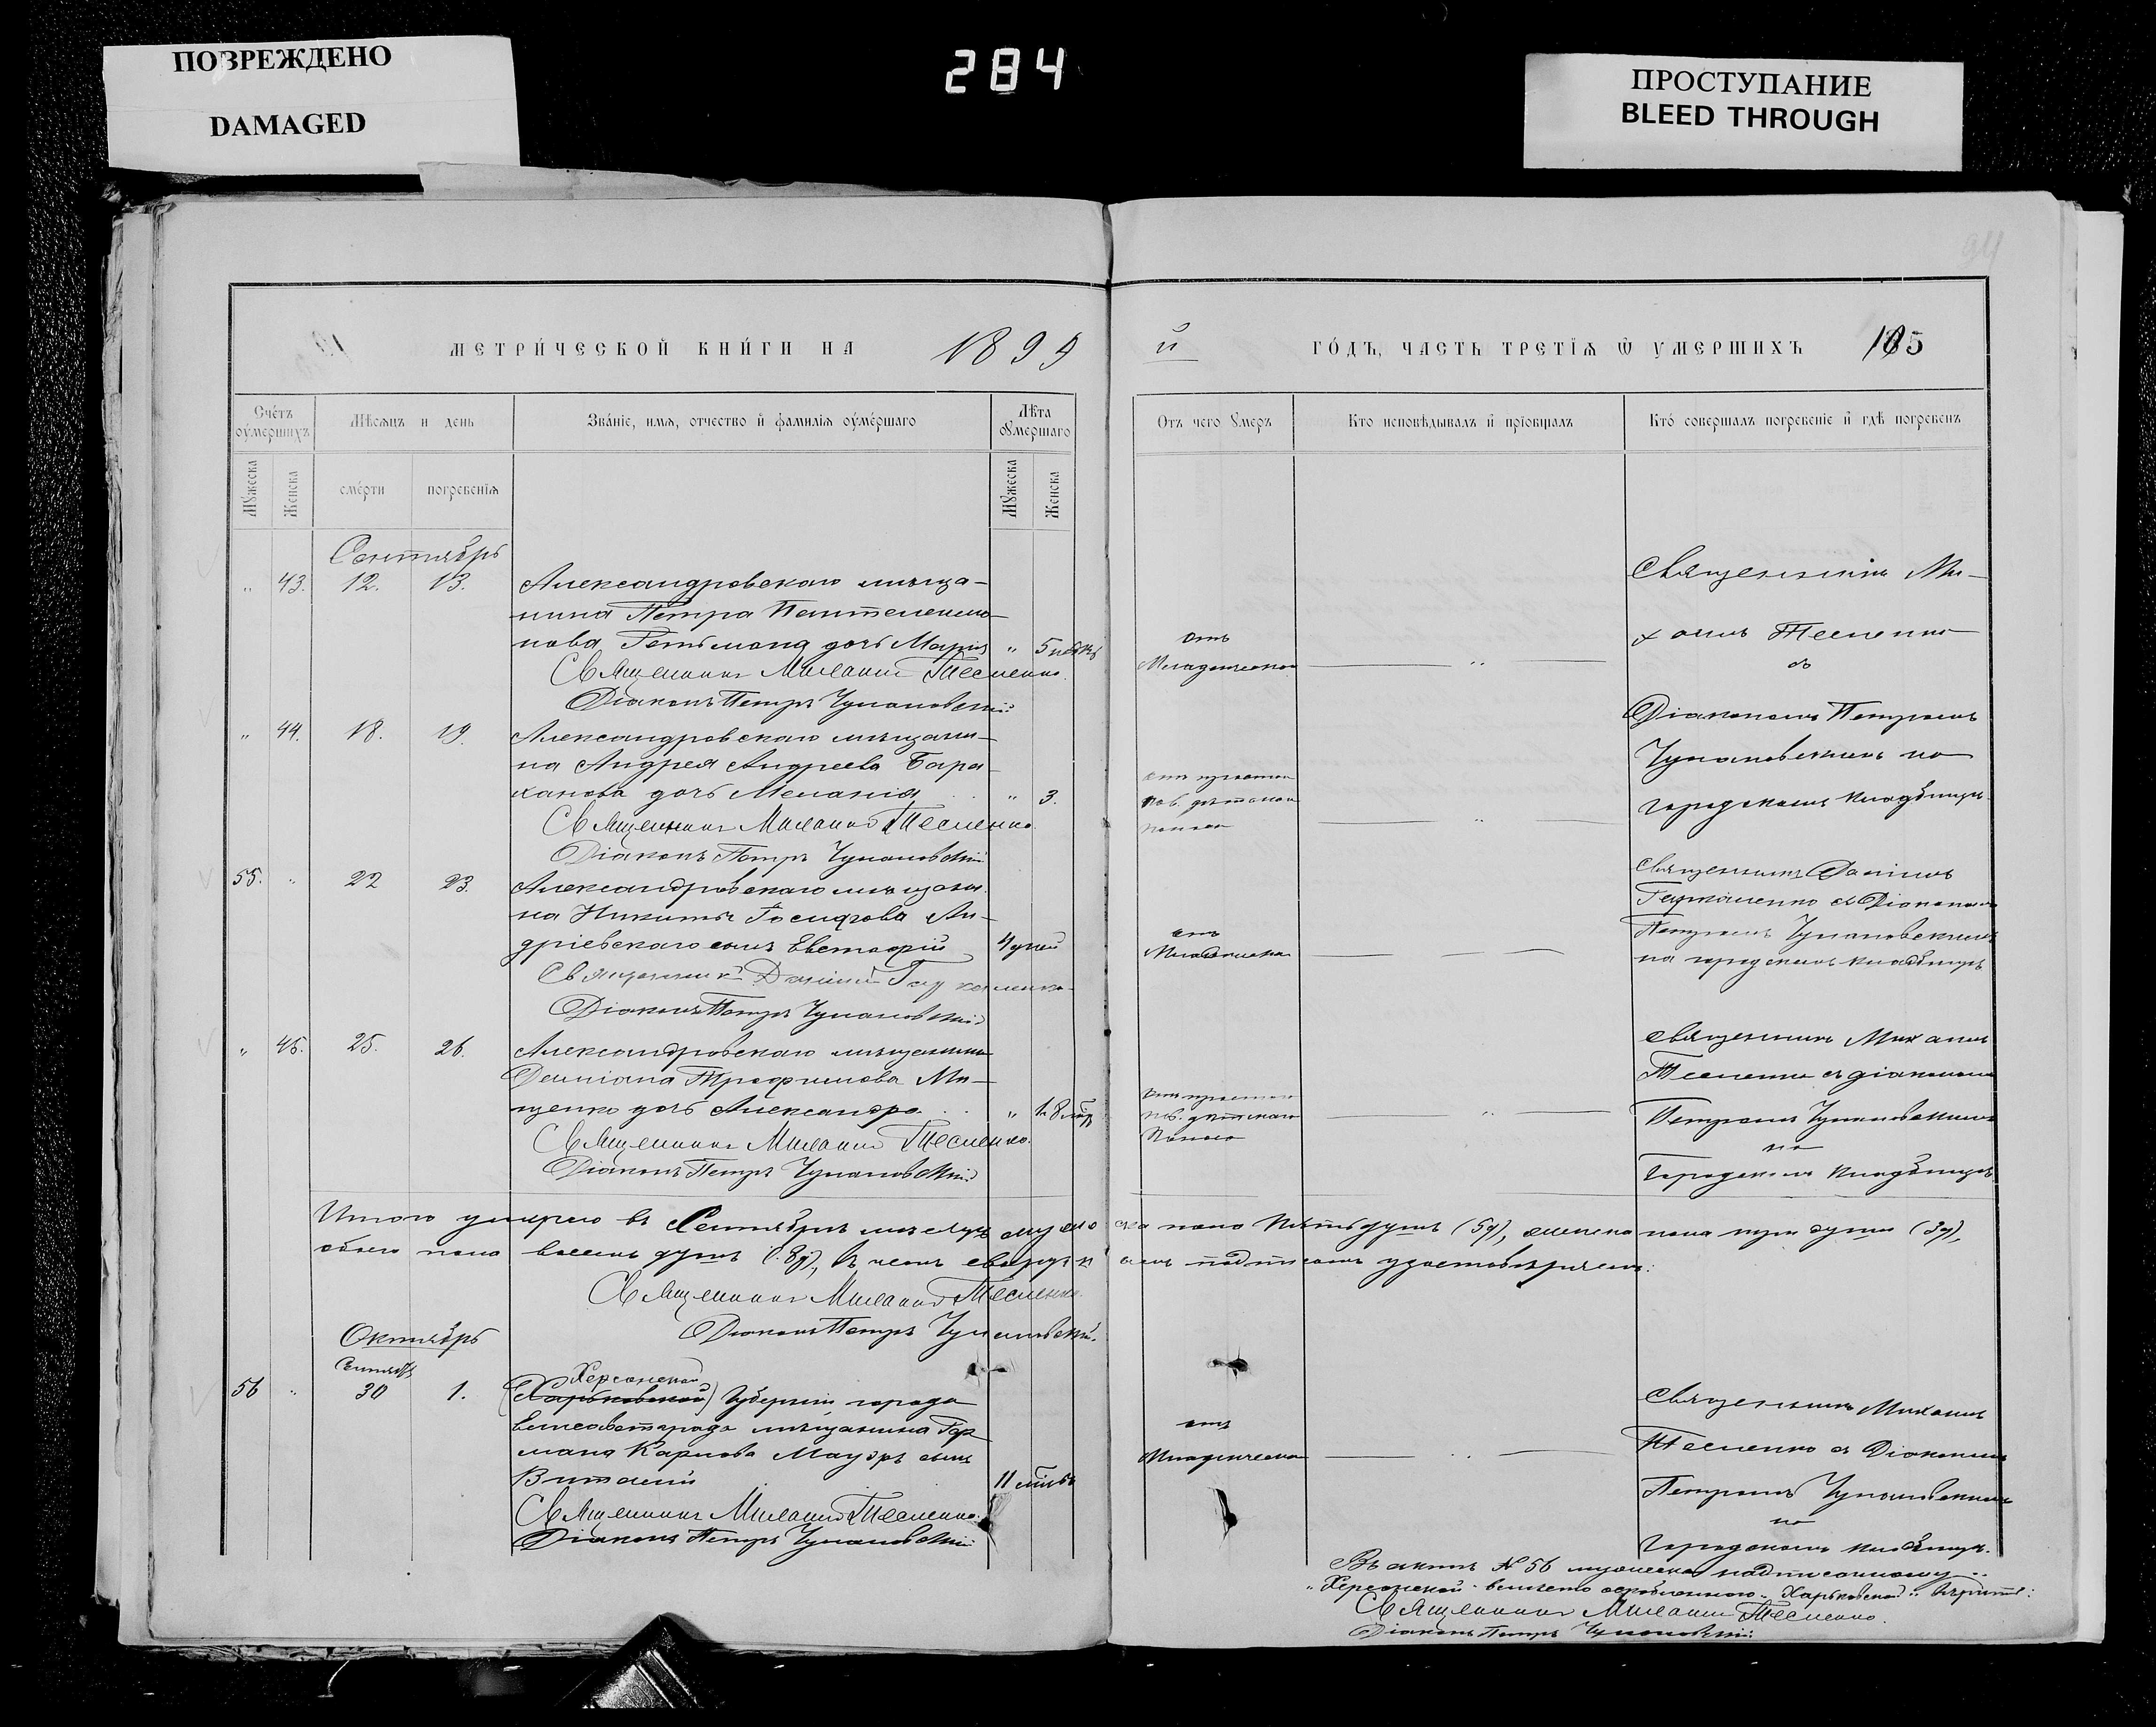 ПОВРЕЖДЕНО
DAMAGED
284
ПРОСТУПАНИЕ
BLEED THROUGH
94
МЕТРИ́ЧЕСКОЙ КНИ́ГИ НА 1899
й ГО́ДЪ, ЧАСТЬ ТРЕТІѦ Ѿ УМЕРШИХЪ 105
Сче́тъ оу҆ме́ршихъ
Мѣсяцъ и день
Зва́ніе, имя, отчество и҆ фамилія оу҆ме́ршаго
Лѣта оу҆мершаго
Мꙋжеска
Женска
сме́рти
погребенія
Мꙋжеска
Женска
Отъ чего ꙋмеръ
Кто исповѣдывалъ и҆ пріобщалъ
Кто́ совершалъ погребеніе и҆ гдѣ погребенъ
Сентябрь
" 43. 12. 13. Александровскаго мѣща-
нина Петра Пантелеимо-
нова Гетьмана дочь Марія "
Священникъ Михаилъ Тесленко.
Діаконъ Петръ Чулановскій
отъ
Младенческой
Священникъ Ми-
хаилъ Тесленко
съ
Діакономъ Петромъ
Чулановскимъ на
городскомъ кладбищѣ.
" 44. 18. 19. Александровскаго мѣщани-
на Андрея Андреева Бара-
ханова дочь Меланія " 3.
Священникъ Михаилъ Тесленко.
Діаконъ Петръ Чулановскій
55. " 22 23. Александровскаго мѣщани-
на Никиты Ан-
дріевскаго сынъ Евстафій 4 дней
Священникъ Даніилъ
Діаконъ Петръ Чулановскій
отъ
Младенческ
Священникъ Даніилъ
съ Діакономъ
Петромъ Чулановскимъ
на городскомъ кладбищѣ
" 45. 25. 26. Александровскаго мѣщанина
Даміана Трофимова Ми-
щенко дочь Александра "
Священникъ Михаилъ Тесленко.
Діаконъ Петръ Чулановскій
Священникъ Михаилъ
Тесленко съ діакономъ
Петромъ Чулановскимъ
на
Городскомъ кладбищѣ
Итого умерло въ Сентябрѣ мѣсяцѣ мужеска пола пять душъ (5д), женска пола три души (3д),
обоего пола восемь душъ (8д), въ чемъ подписомъ удостовѣряемъ:
Священникъ Михаилъ Тесленко.
Діаконъ Петръ Чулановскій.
Октябрь
Сентября
56 " 30 1. Херсонской
(Харьковской) Губерніи города
Елисаветграда мѣщанина Гер-
мана Карлова Мауэръ сынъ
Виталій 11
Священникъ Михаилъ Тесленко.
Діаконъ Петръ Чулановскій
отъ
Младенческ
Священникъ Михаилъ
Тесленко съ Діакономъ
Петромъ Чулановскимъ
на
Городскомъ кладбищѣ.
Въ актѣ № 56 мужеска надписанному
"Херсонской" вмѣсто "Харьковской" вѣрить:
Священникъ Михаилъ Тесленко.
Діаконъ Петръ Чулановскій